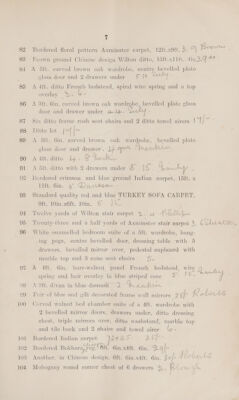 7
82 Bordered floral pattern Axminster carpet, 12ft.x9ft. 3. 9 Brown
83 Brown ground Chinese design Wilton ditto, 12ft.x11ft. 6in.
84 A 5ft. carved brown oak wardrobe, centre bevelled plate
glass door and 2 drawers under
85 A 4ft. ditto French bedstead, spiral wire spring and a top
overlay 3. 6.
86 A 5ft. 6in. carved brown oak wardrobe, bevelled plate glass
door and drawer under
87 Six ditto frame rush seat chairs and 2 ditto towel aires 17/-
88 Ditto lot
89 A 5ft. 6in. carved brown oak wardrobe, bevelled plate
glass door and drawer.
90 A 4ft. ditto 4. 8
91 A 5ft. ditto with 2 drawers under 5 15
92 Bordered crimson and blue ground Indian carpet, 15ft. x
11ft. 6in.
93 Standard quality red and blue TURKEY SOFA CARPET,
9ft. 10in.x6ft. 10in. 5 15
94 Twelve yards of Wilton stair carpet 2.
95 Twenty-three and a half yards of Axminster stair carpet 3
96 White enamelled bedroom suite of a 5ft. wardrobe, hang-
ing pegs, centre bevelled door, dressing table with 5
drawers, bevelled mirror over, pedestal cupboard with
marble top and 3 cane seat chairs 5.
97 A 4ft. 6in. barwooding panel French bedstead, wire
spring and hair overlay in blue striped case 5 15
98 A 7ft. divan in blue damask 2
99 Pair of blue and gilt decorated frame wall mirrors 28/- Roberts
100 Carved walnut bed chamber suite of a 4ft. wardrobe with
2 bevelled mirror doors, drawers under, ditto dressing
chest, triple mirrors over, ditto washstand, marble top
and tile back and 2 chairs and towel airer 6.
101 Bordered Indian carpet
102 Bordered Bokhara 6in.x4ft. 6in.
103 Another, in Chinese design, 6ft. 6in.x4ft. 6in. Roberts
104 Mahogany round corner chest of 6 drawers 3.